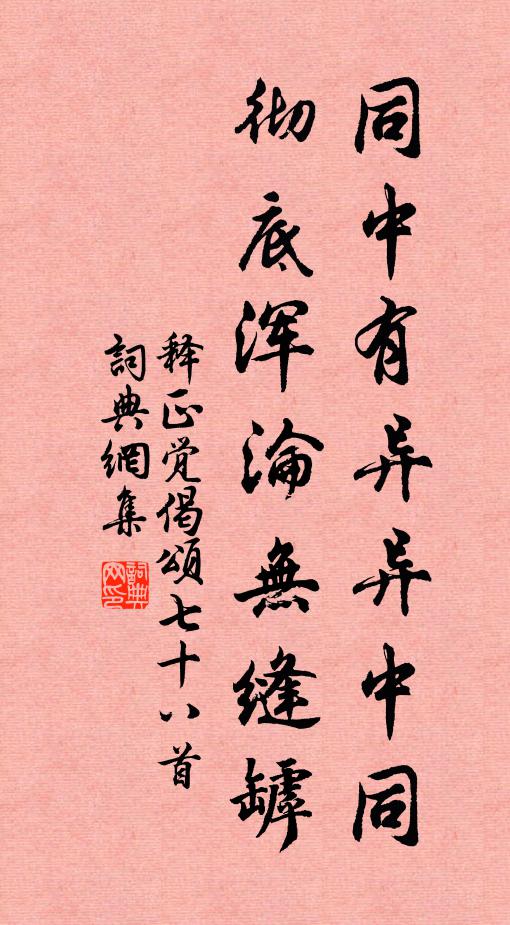 同中有异异中同
彻底浑沦無缝罅
释正觉偈頌七十八首
詞典網集
詞典网印